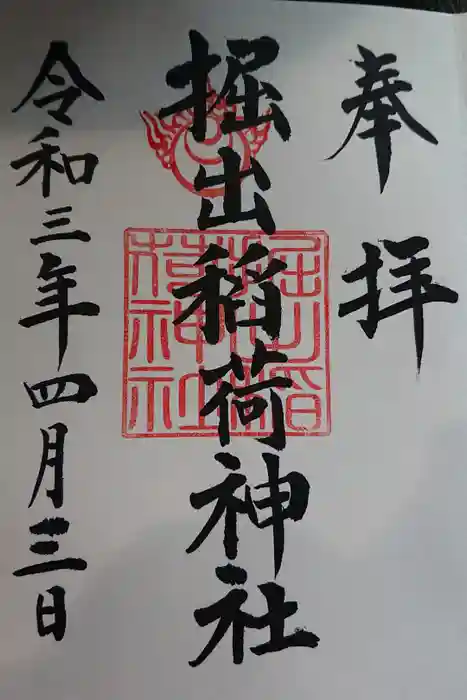 奉拝
掘出稲荷神社
令和三年四月三日